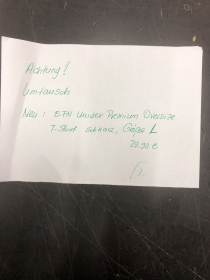 Achtung!
Umtausch
Neu: EFN Unisex Premium Oversize
T-Shirt schwarz, Größe L
29.90 €